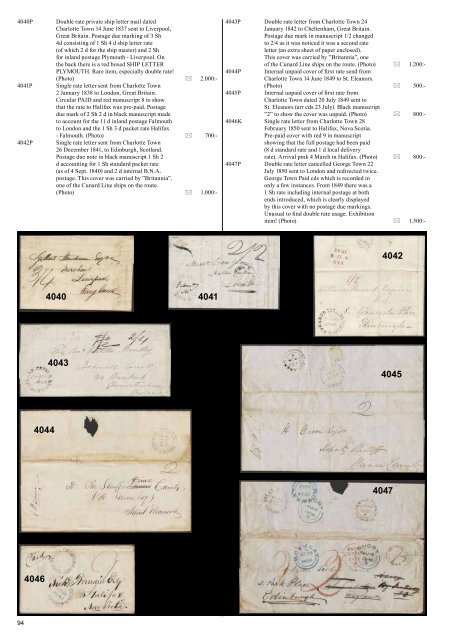 4040P Double rate private ship letter mail dated
Charlotte Town 14 June 1837 sent to Liverpool,
Great Britain. Postage due marking of 3 Sh
4d consisting of 1 Sh 4 d ship letter rate
(of which 2 d for the ship master) and 2 Sh
for inland postage Plymouth - Liverpool. On
the back there is a red boxed SHIP LETTER
PLYMOUTH. Rare item, especially double rate!
(Photo) 2.000:-
4041P Single rate letter sent from Charlotte Town
2 January 1838 to London, Great Britain.
Circular PAID and red manuscript 8 to show
that the rate to Halifax was pre-paid. Postage
due mark of 2 Sh 2 d in black manuscript made
to account for the 11 d inland postage Falmouth
to London and the 1 Sh 3 d packet rate Halifax
- Falmouth. (Photo) 700:-
4042P Single rate letter sent from Charlotte Town
26 December 1841, to Edinburgh, Scotland.
Postage due note in black manuscript 1 Sh 2
d accounting for 1 Sh standard packet rate
(as of 4 Sept. 1840) and 2 d internal B.N.A.
postage. This cover was carried by "Britannia",
one of the Cunard Line ships on the route.
(Photo) 1.000:-
4043P Double rate letter from Charlotte Town 24
January 1842 to Cheltenham, Great Britain.
Postage due mark in manuscript 1/2 changed
to 2/4 as it was noticed it was a second rate
letter (an extra sheet of paper enclosed).
This cover was carried by "Britannia", one
of the Cunard Line ships on the route. (Photo) 1.200:-
4044P Internal unpaid cover of first rate send from
Charlotte Town 14 June 1849 to St. Eleanors.
(Photo) 500:-
4045P Internal unpaid cover of first rate from
Charlotte Town dated 20 July 1849 sent to
St. Eleanors (arr cds 23 July). Black manuscript
"2" to show the cover was unpaid. (Photo) 800:-
4046K Single rate letter from Charlotte Town 28
February 1850 sent to Halifax, Nova Scotia.
Pre-paid cover with red 9 in manuscript
showing that the full postage had been paid
(8 d standard rate and 1 d local delivery
rate). Arrival pmk 4 March in Halifax. (Photo) 800:-
4047P Double rate letter cancelled George Town 22
July 1850 sent to London and redirected twice.
George Town Paid cds which is recorded in
only a few instances. From 1849 there was a
1 Sh rate including internal postage at both
ends introduced, which is clearly displayed
by this cover with no postage due markings.
Unusual to find double rate usage. Exhibition
item! (Photo) 1.500:-
4040
Liverpool
England
4041
London
4042
Edinburgh
4043
4044
4045
4046
Paid
Halifax
4047
Edinburgh
94